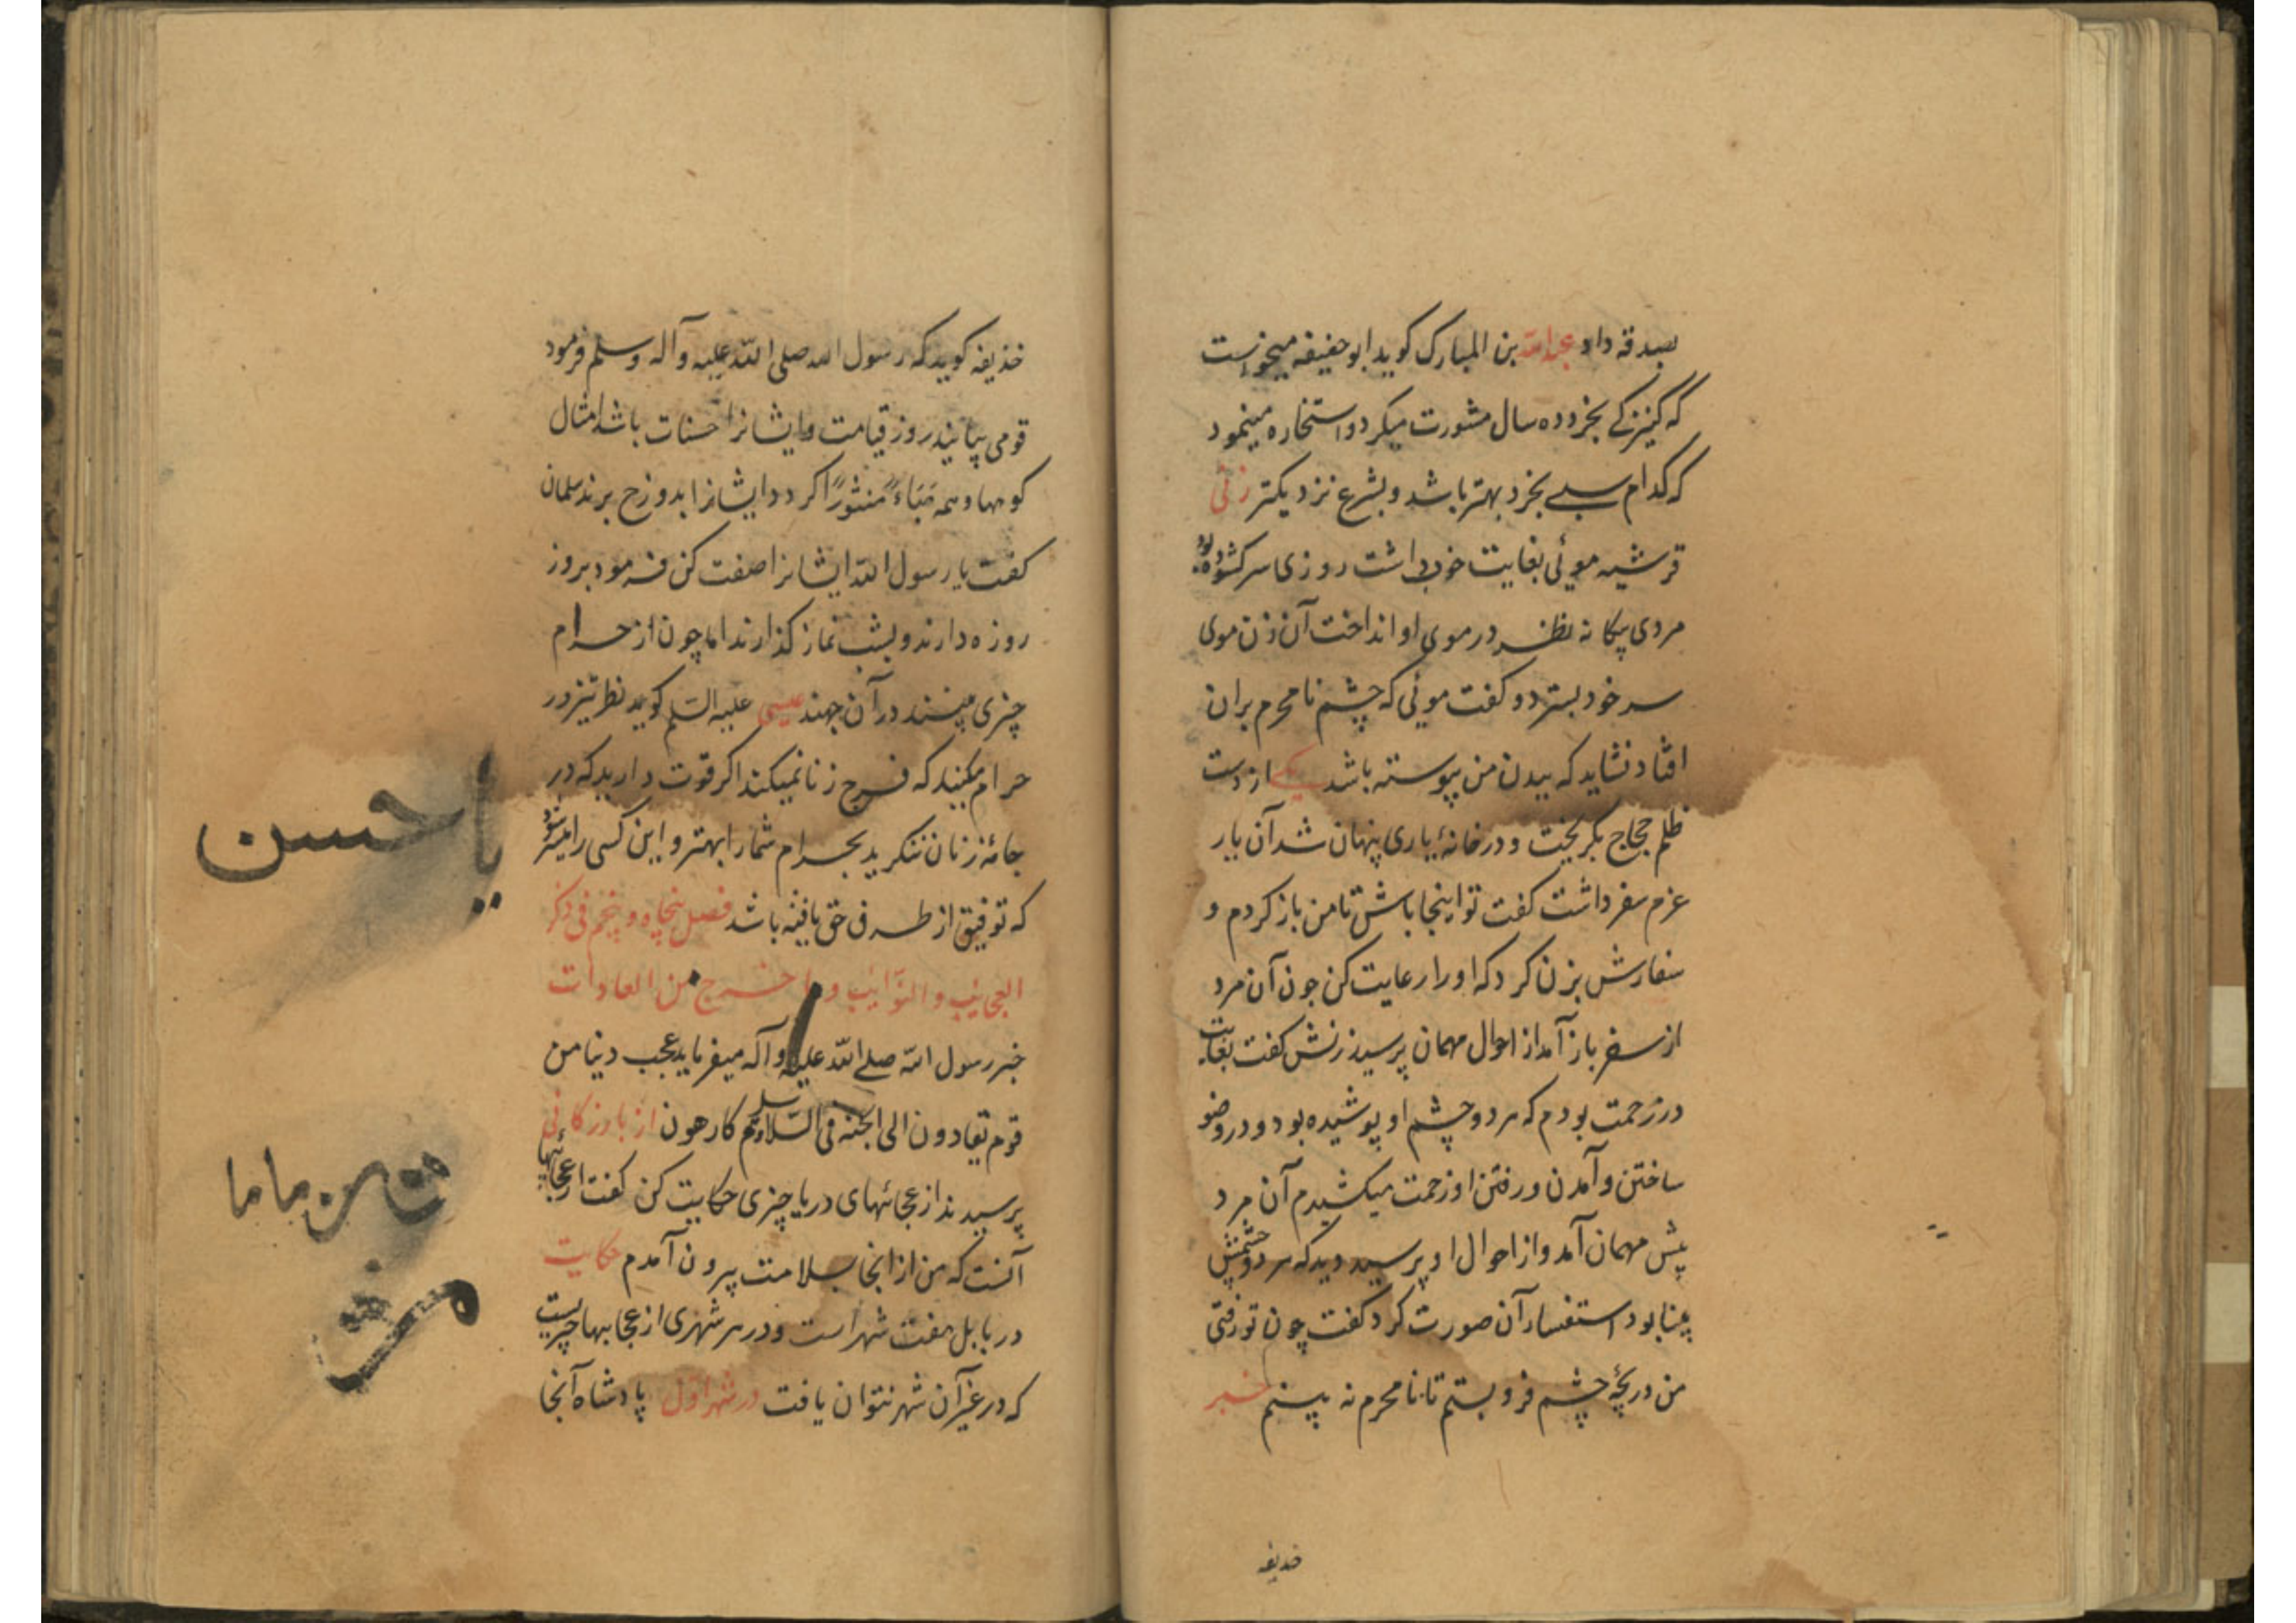 بصدقه داد عبدالله بن المبارک کوید ابوحنیفه میخواست
که کنیزکے بخرد ده سال مشورت میکرد و استخاره مینمود
که کدام سبے بخرد بهتر باشد و بشرع نزدیکتر زنی
قرشیه موئی بغایت خوب داشت روزی سر کشوده بود
مردی بیکانه نظر در موی او انداخت آن زن موی
سر خود بسترد و کفت موئی که چشم نامحرم بران
افتاد نشاید که ببدن من پیوسته باشد یکے از دست
ظلم حجاج بکریخت و در خانهٔ یاری پنهان شد آن یار
عزم سفر داشت کفت تو اینجا باش تا من باز کردم و
سفارش بزن کرد که او را رعایت کن چون آن مرد
از سفر باز آمد از احوال مهمان پرسید زنش کفت بغایت
در زحمت بودم که هر دو چشم او پوشیده بود و در وضو
ساختن و آمدن و رفتن او زحمت میکشیدم آن مرد
پیش مهمان آمد و از احوال او پرسید دید که هر دو چشمش
بینا بود استفسار آن صورت کرد کفت چون تو رفتی
من دریچهٔ چشم فرو بستم تا نامحرم نه بینم خبر
خذیفه
خذیفه کوید که رسول الله صلی الله علیه وآله وسلم فرمود
قومی بیایند روز قیامت و ایشانرا حسنات باشد امثال
کوهها و همه هَبَاءً مَنثورًا کردد و ایشانرا بدوزخ برند سلمان
کفت یا رسول الله ایشانرا صفت کن فرمود بروز
روزه دارند و بشب نماز کذارند اما چون از حرام
چیزی بینند در آن جهند عیسی علیه السلم کوید نظر تیز در
حرام مکنید که فرج زنا نمیکند اکر قوت دارید که در
جامهٔ زنان ننکرید بحرام شمارا بهتر و این کسی را میسر شود
که توفیق از طرف حق یافته باشد فصل پنجاه و پنجم فی ذکر
العجایب والنوایب وما خرج من العادات
خبر رسول الله صلے الله علیه وآله میفرماید عجب دنیا من
قوم یقادون الی الجنه فی السلاسل وهم کارهون از بازرکانی
پرسیدند از عجائبهای دریا چیزی حکایت کن کفت از عجائبها
آنست که من از انجا بسلامت بیرون آمدم حکایت
در بابل هفت شهر است و در هر شهری از عجایبها چیزیست
که در غیر آن شهر نتوان یافت در شهر اول پادشاه آنجا
یا حسن